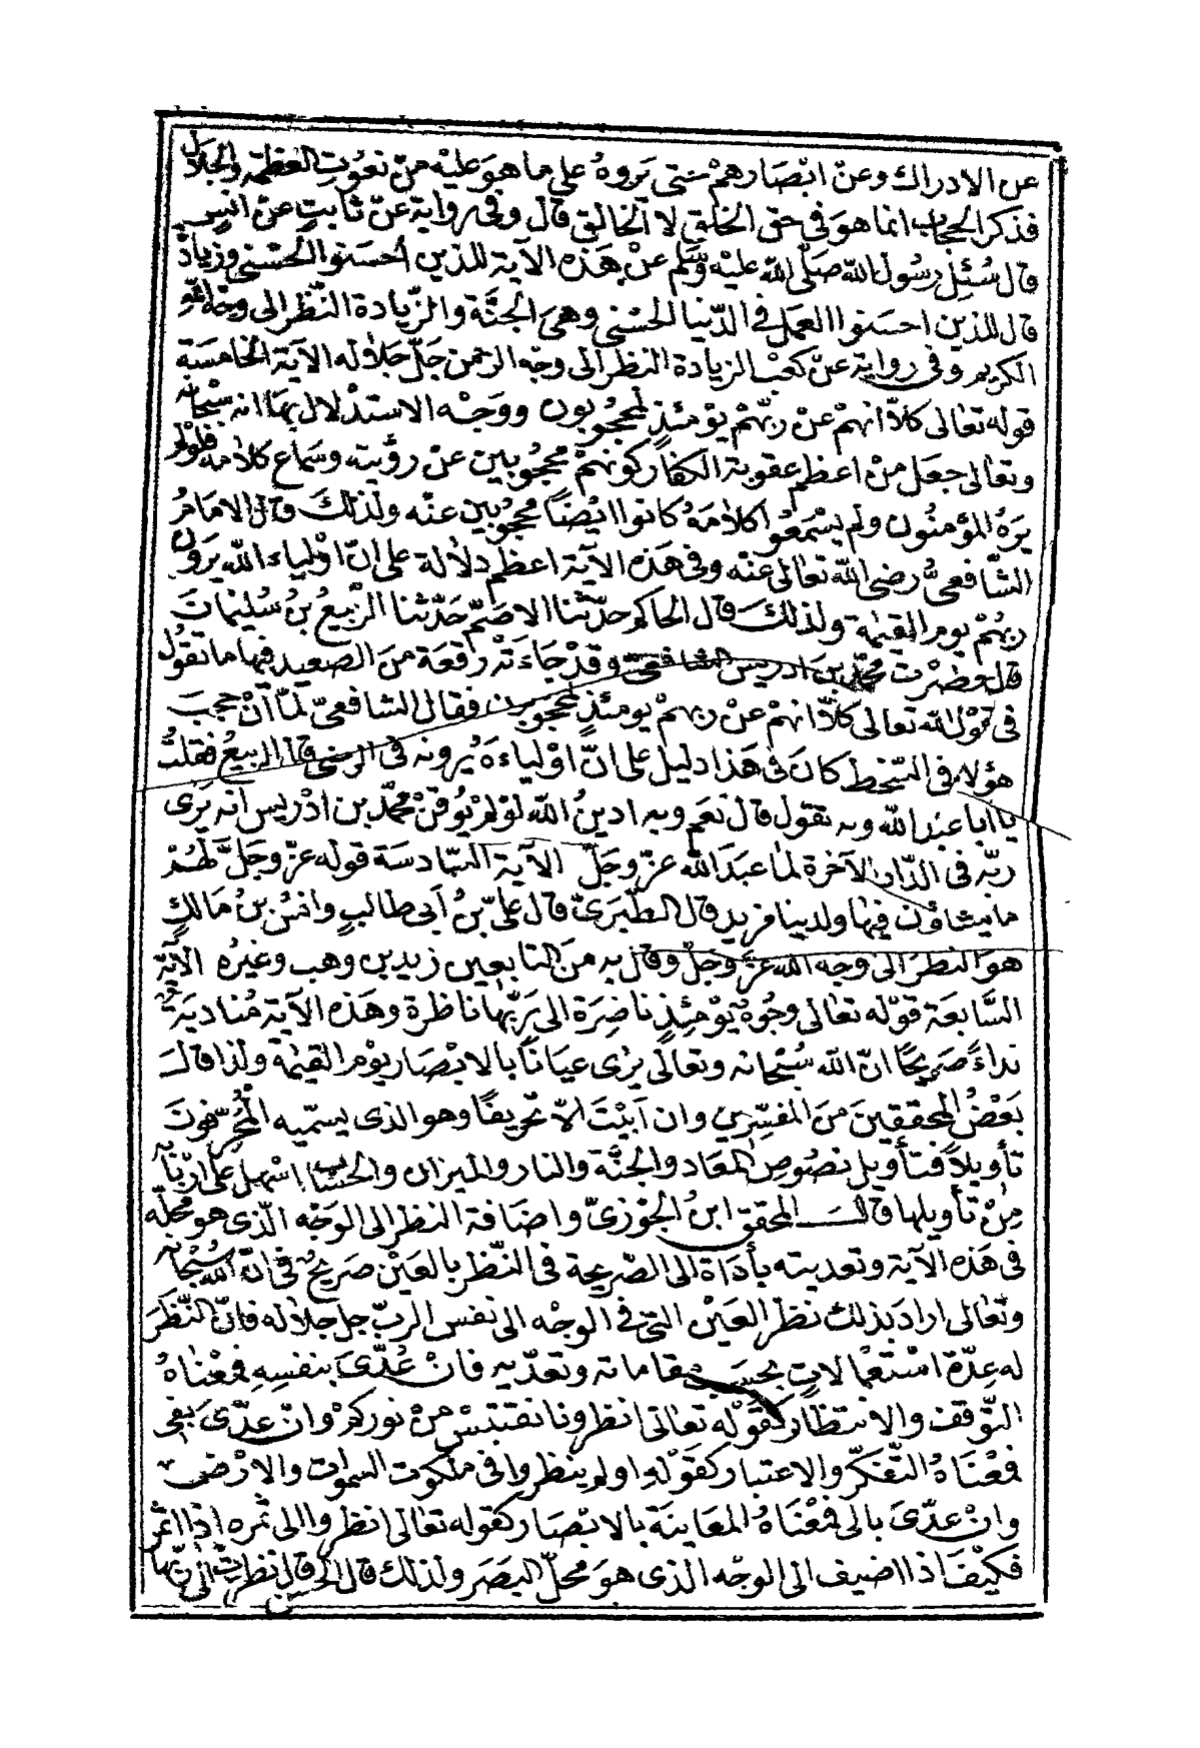 عن الادراك وعن ابْصَارهمْ متى يَروهُ على ما هوَ عليْه منْ نعوُتِ العظمة والجلال
فذكر الحجاب انما هوَ فى حق الخلق لا الخالق قال وفى رواية عنْ ثابتٍ عنْ انسٍ
قال سُئِل رسُول الله صَلّى الله عليْه وسَلم عنْ هَذه الآية للذين أحسَنوا الحُسْنى وزيادة
قال للذين احسَنوا العمل فى الدّنيا الحسْنى وهىَ الجنَّة والزّيادة النّظر الى وجْه الله
الكريم وفى رواية عنْ كعْب الزيادة النظر الى وجْه الرحمن جَلّ جَلاله الآية الخامسَة
قوله تعَالى كلاّ انهمْ عنْ ربّهمْ يوْمئذٍ لمحْجُوبون ووَجْه الاستدْلال بها انه سُبْحانه
وتعَالى جعَل منْ اعظم عقوبة الكفار كونهمْ محْجُوبين عنْ رؤيته وسَماع كلامه فلوْ لم
يرَهُ المؤمنُون ولم يسْمَعُوا كلامَهُ كانوا ايْضاً محْجُوبين عنْه ولذلكَ قال الامَامُ
الشّافعىُّ رضى الله تعَالى عنْه وفى هَذه الآية اعظم دلالة على انّ اوْلياء الله يَروْن
ربهُمْ يوم القيٰمة ولذلكَ قال الحاكم حدّثنا الاصَمّ حَدّثنا الرّبيعُ بنُ سُليْمانَ
قال حضرْت محمّد بن ادريس الشافعىّ وقدْ جَاءتْه رقعَة منَ الصعيد فيها ما تقوُل
فى قوْل الله تعَالى كلاّ انهمْ عنْ ربهمْ يومئذٍ لمحْجوبون فقال الشافعىّ لمّا انْ حجبَ
هؤلاء فى السّخط كانَ فى هَذا دليل على انّ اوْلياءهَ يُرونه فى الرضى قال الربيعُ فقلتُ
يا ابا عبْد الله وبه تقول قال نعَم وبه ادينُ الله لوْ لمْ يوُقنْ محمّد بن ادْريس انه يَرَى
ربّه فى الدّار الآخرة لما عبَدَ الله عزّ وجَلّ الآية السّادسَة قوله عزّ وجَلَّ لهُمْ
ما يشاؤن فيها ولدينا مزيد قال الطّبَرىّ قال علىّ بْنُ أبى طالبٍ وانسُ بنُ مَالكٍ
هوَ النظرَ الى وجه الله عزَّ وجَلّ وقال به منَ التابعين زيد بن وهب وغيْرُه الآيَة
السَّابعَة قوْله تعَالى وجُوهٌ يوْمئِذٍ ناضِرَة الى رَبّها ناظرة وهَذه الآية مُناديَة
نداءً صَريحًا انّ الله سُبْحانه وتعَالى يُرٰى عيَاناً بالابْصَار يوْم القيٰمة ولذا قالَ
بَعْضُ المحققينَ منَ المفسّرين وان اَبيْتَ الاّ تحْريفًا وهو الذى يسمّيه المُحَرّفونَ
تأويلاً فتأويل نصُوصِ المعَاد والجنَّة والنار والميزان والحسَاب اسْهل على ارْبابه
مِنْ تأويلها قالـــ المحقق ابنُ الجَوْزىّ واضَافة النظر الى الوَجْه الّذى هو محَلّه
فى هَذه الآية وتعديته بأدَاة الى الصّريحة فى النّظر بالعَيْن صَريحٌ فى انّ الله سُبْحانه
وتعَالى ارادَ بذلك نظر العَيْن التّى فى الوجْه الى نفس الربّ جل جَلاله فانّ النَّظَرَ
له عِدّة اسْتعْمالاتٍ بحسَب مقاماته وتعَدّيه فانْ عُدّىَ بنفسِهِ فمعْناهُ
التّوقف والانتظار كقوْله تعَالى انظرونا نقتبسْ منْ نوركمْ وانْ عدّىَ بفى
فمعْنَاهُ التّفكّر والاعتبار كقوْلهِ اولم ينظروا فى ملكوت السموات والارْض
وانْ عدّىَ بالى فمعْنَاهُ المعَاينَة بالابْصَار كقوله تعَالى انظروا الى ثمره اذا اثمرَ
فكيْفَ اذا اضيف الى الوجْه الذى هوَ محلّ البصَرَ ولذلك قال الحسَن نظرتْ الى ربّها